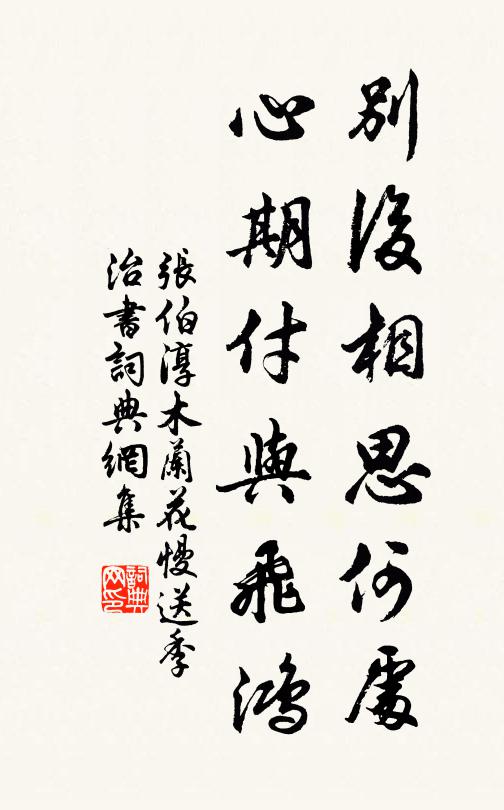 別後相思何處
心期付與飛鴻
張伯淳木蘭花慢送季
治書詞典網集
詞典網印